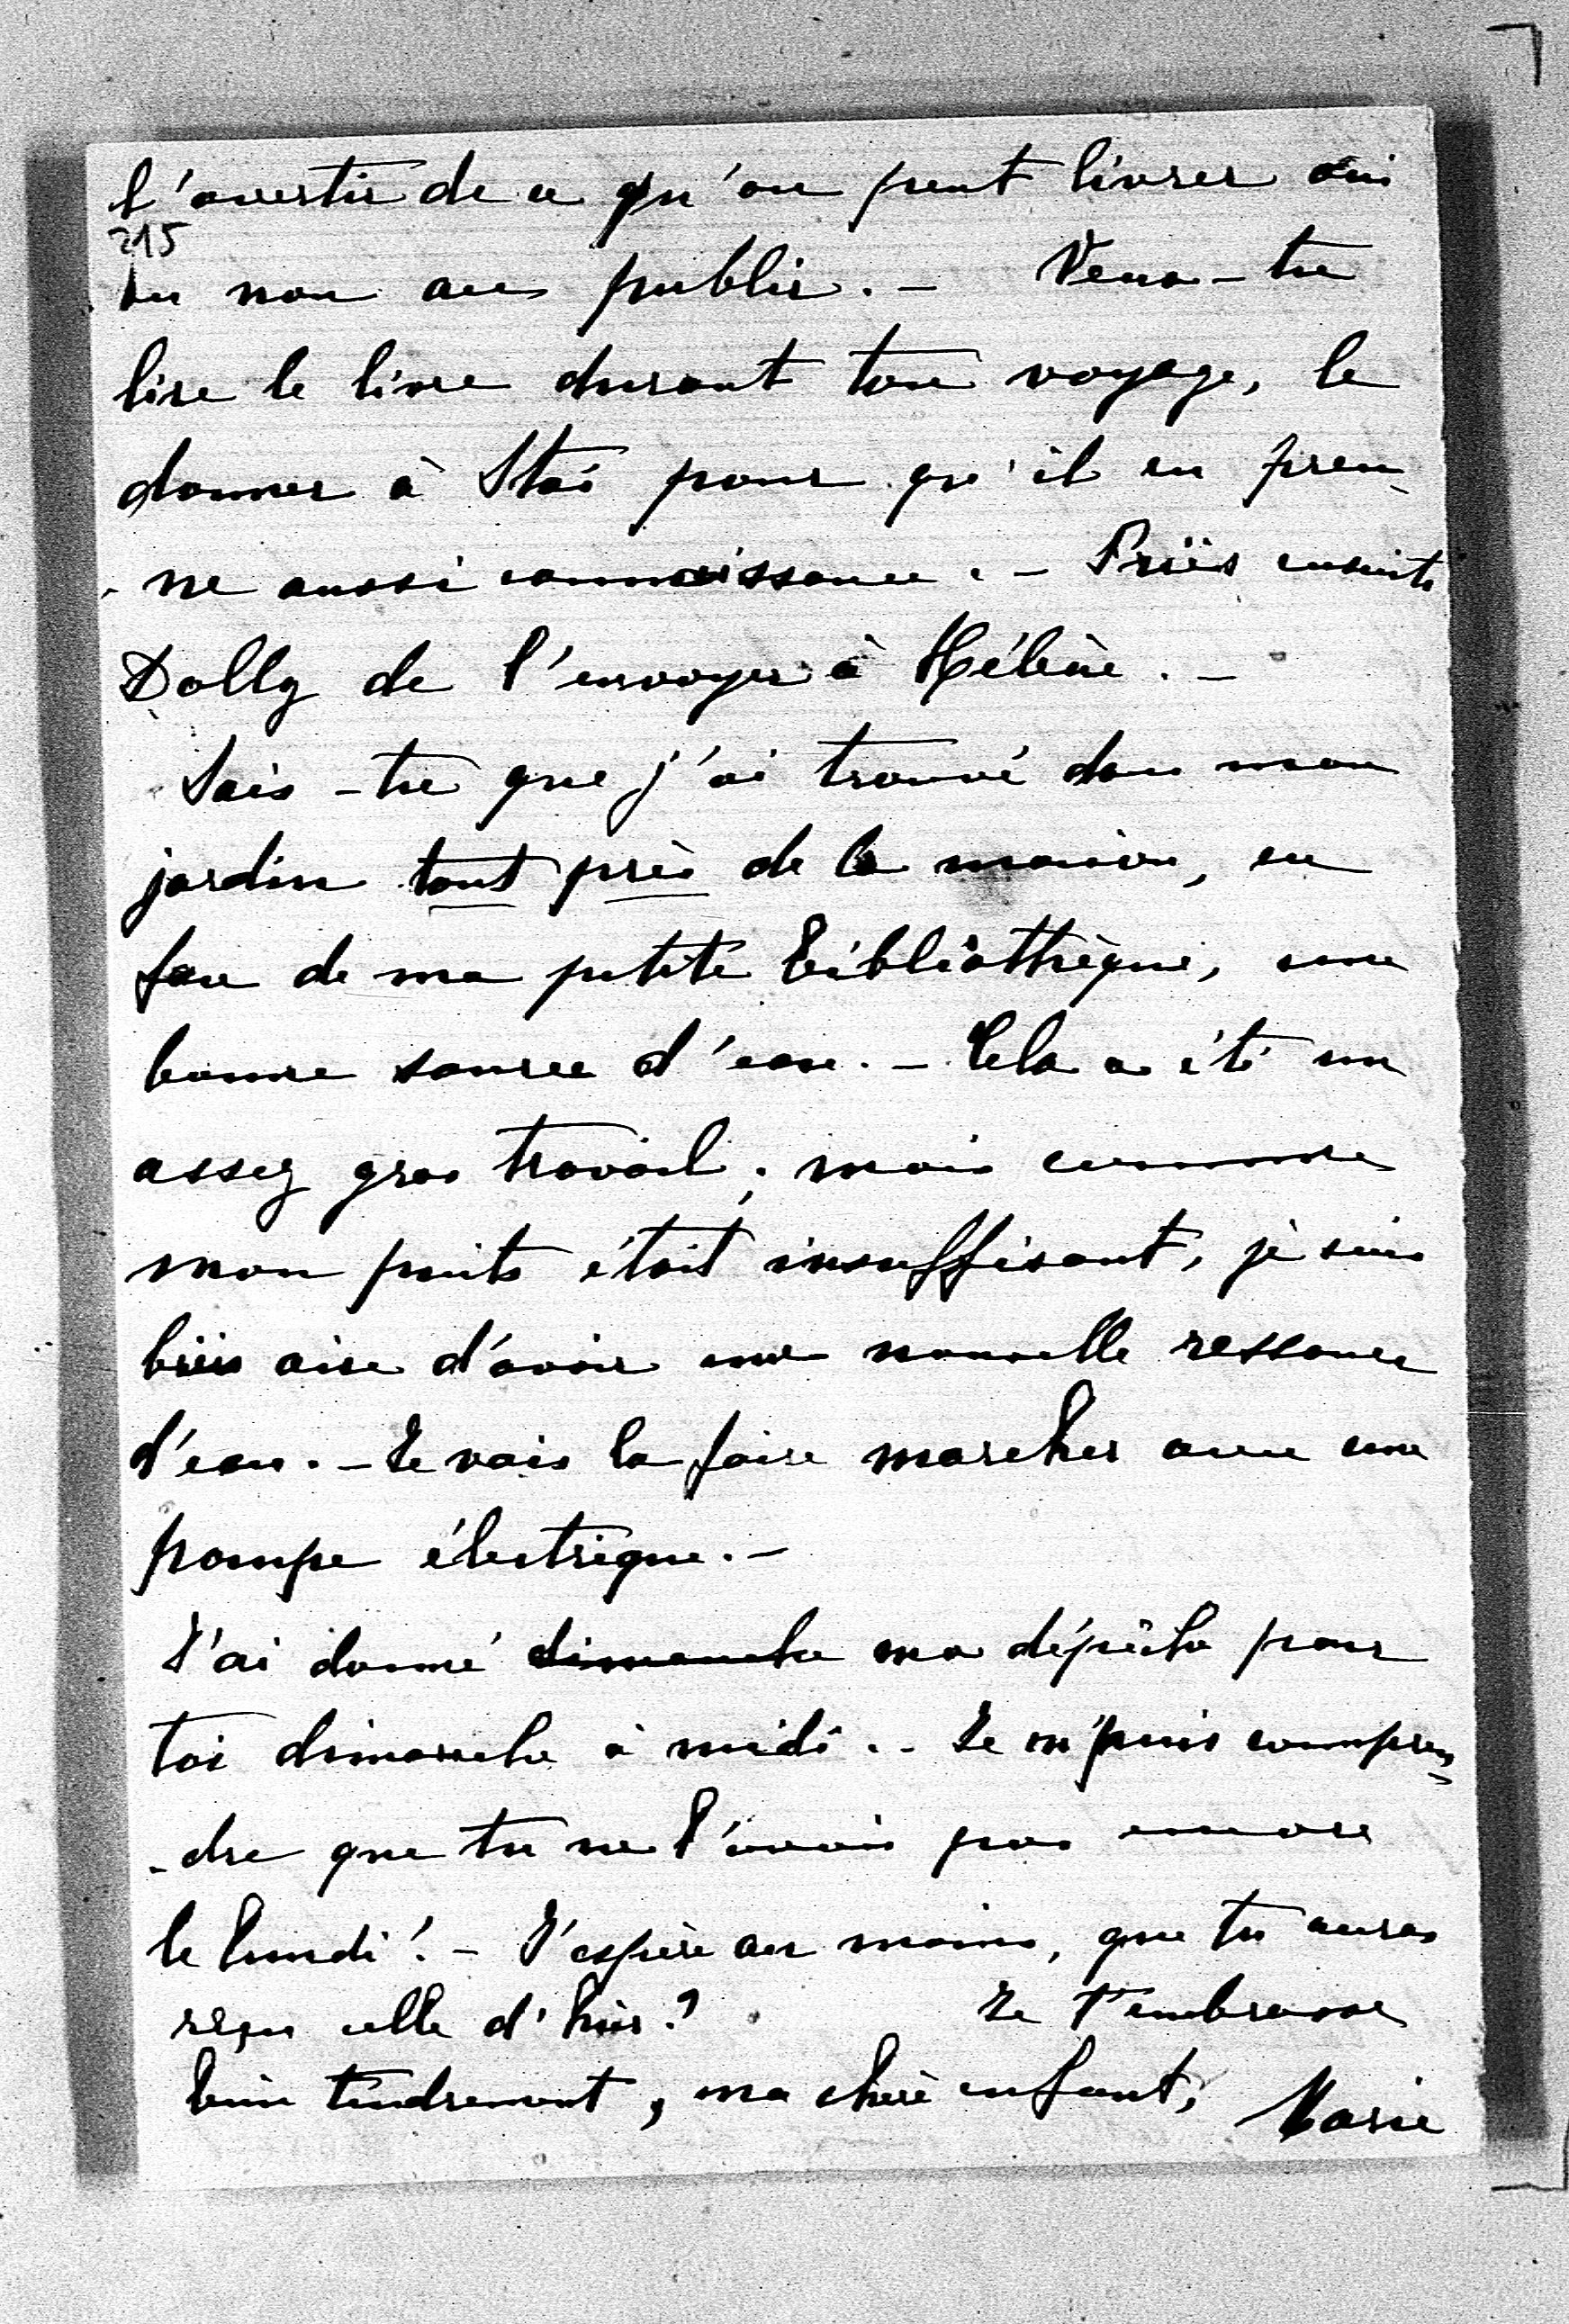 l'avertir de ce qu'on peut livrer oui
215
ou non au public. - Veux-tu
lire le livre durant ton voyage, le
donner à Stoï pour qu'il en pren-
-ne aussi connaissance. - Priës ensuite
Dolly de l'envoyer à Hélène. -
Sais-tu que j'ai trouvé dans mon
jardin tout près de la maison, en
face de ma petite bibliothèque, une
bonne source d'eau. - Cela a été un
assez gros travail; mais comme
mon puits était insuffisant, je suis
bien aise d'avoir une nouvelle ressource
d'eau. - Je vais la faire marcher avec une
pompe électrique. -
J'ai donné dimanche ma dépêche pour
toi dimanche à midi. - Je n'puis compren-
-dre que tu ne l'avais pas encore
le lundi! - J'espère au moins, que tu auras
reçu celle d'hier? Je t'embrasse
bien tendrement, ma chère enfant, Marie